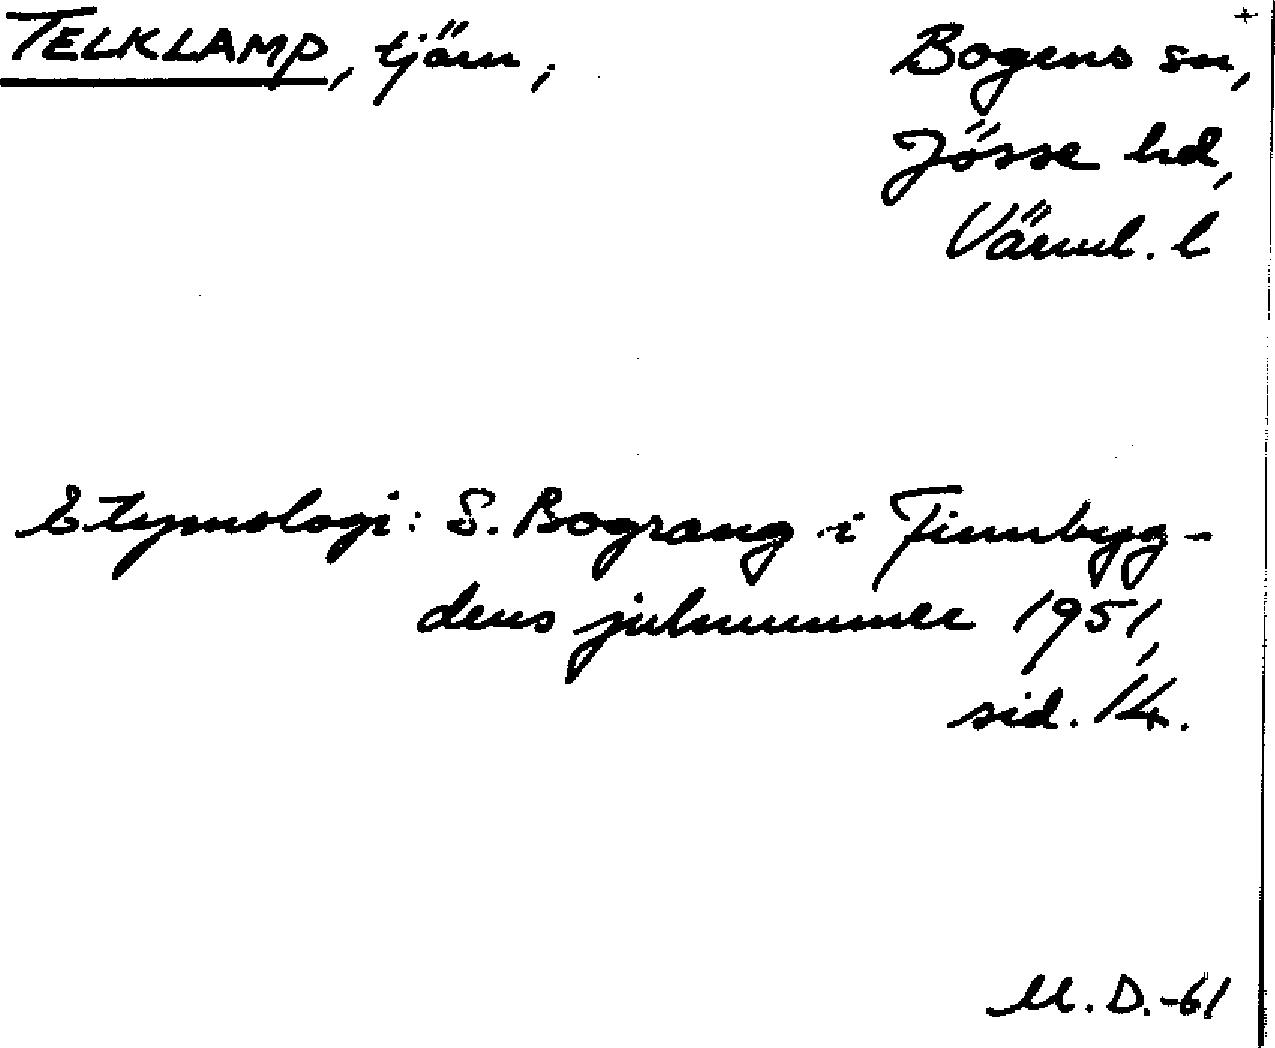 TELKLAMP, tjärn,
Bogens sn,
Jösse hd,
Värml. l
Etymologi: S. Bograng i Finnbyg-
dens julnummer 1951,
sid. 14.
M. D. -61